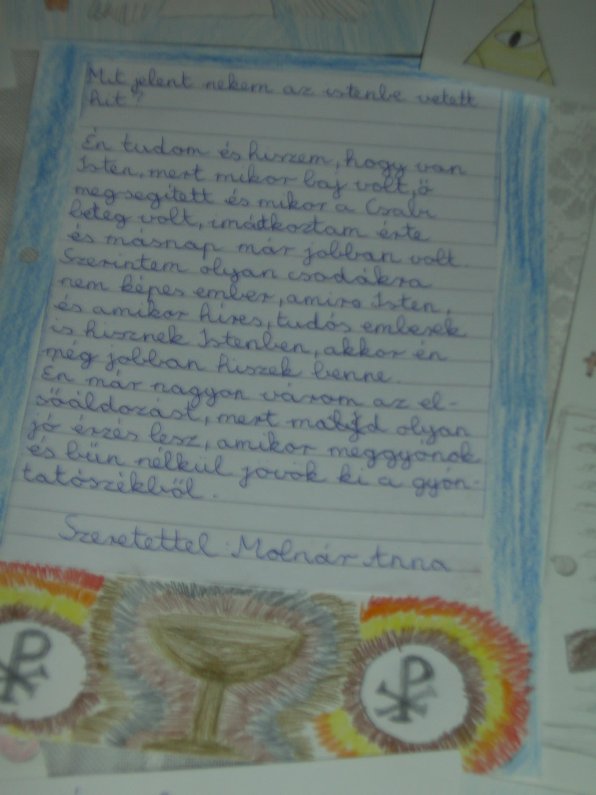 Mit jelent nekem az istenbe vetett
hit?
Én tudom és hiszem, hogy van
Isten, mert mikor baj volt, ő
megsegített és mikor a Csabi
beteg volt, imátkoztam érte
és másnap már jobban volt.
Szerintem olyan csodákra
nem képes ember, amire Isten,
és amikor híres, tudós emberek
is hisznek Istenben, akkor én
még jobban hiszek benne.
Én már nagyon várom az el-
sőáldozást, mert majd olyan
jó érzés lesz, amikor meggyonok
és bűn nélkül jövök ki a gyón-
tatószékből.
Szeretettel: Molnár Anna